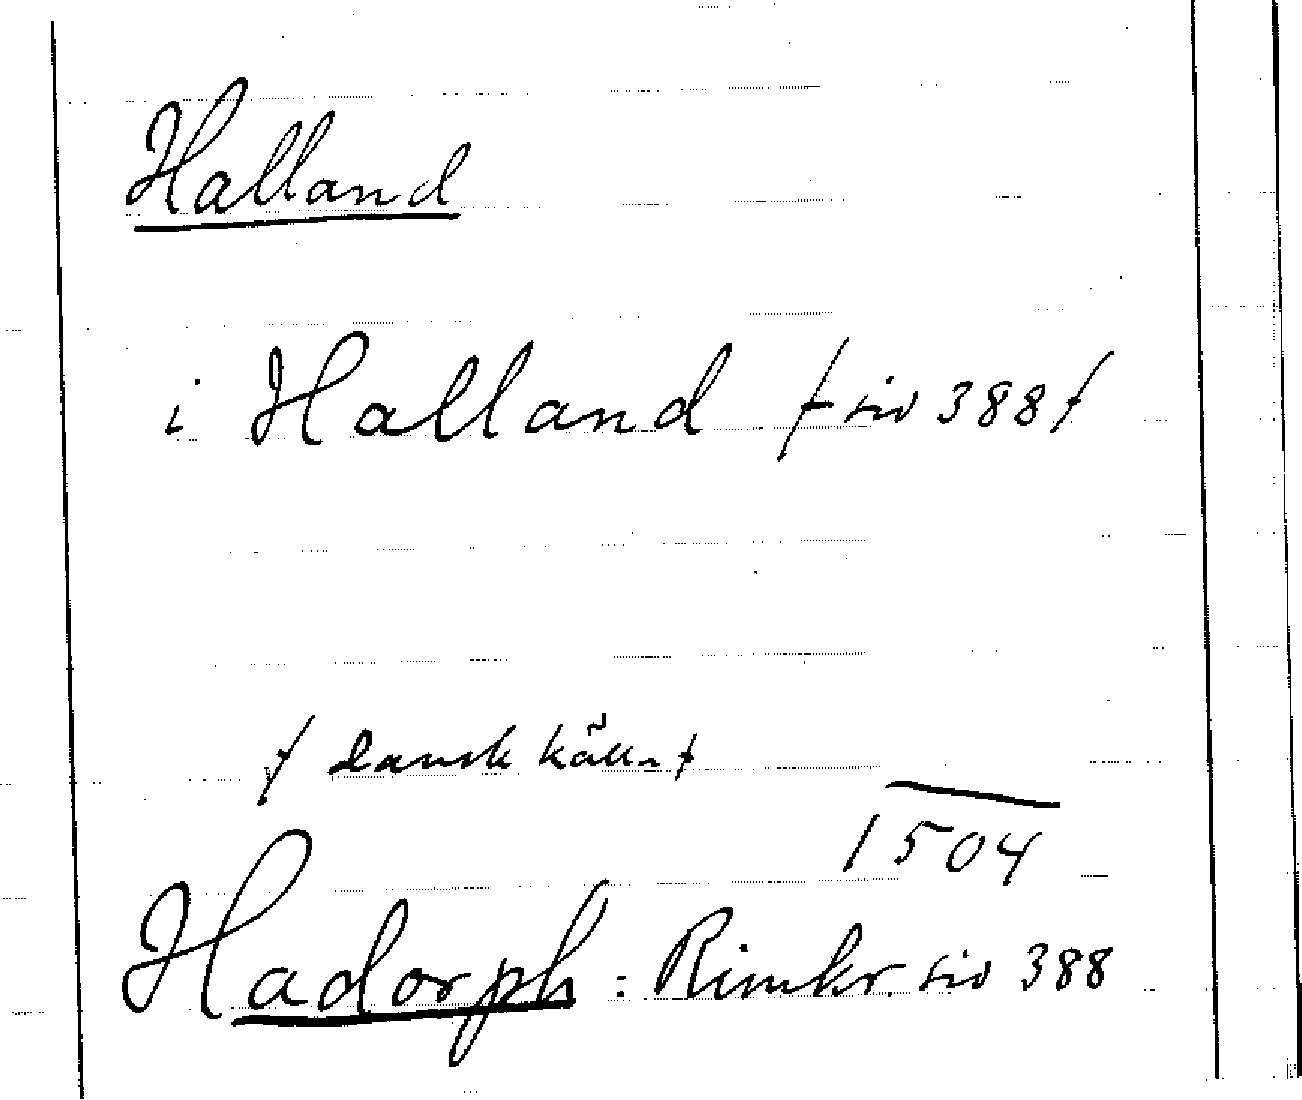 Halland
i Halland / sid 388 /
/ Dansk källa /
1504
Hadorph : Rimkr. sid 388